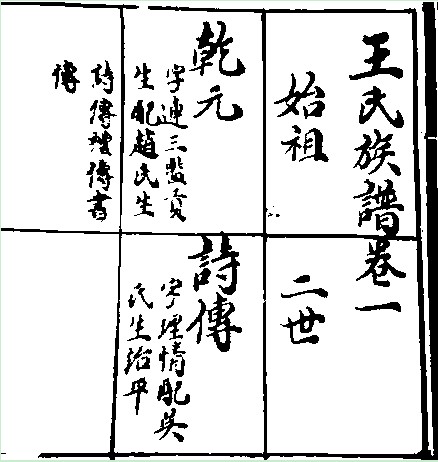 王氏族譜卷一
始祖
乾元
字連三監貢
生配趙氏生
詩傳禮傳書
傳
二世
詩傳
字理情配吳
氏生治平